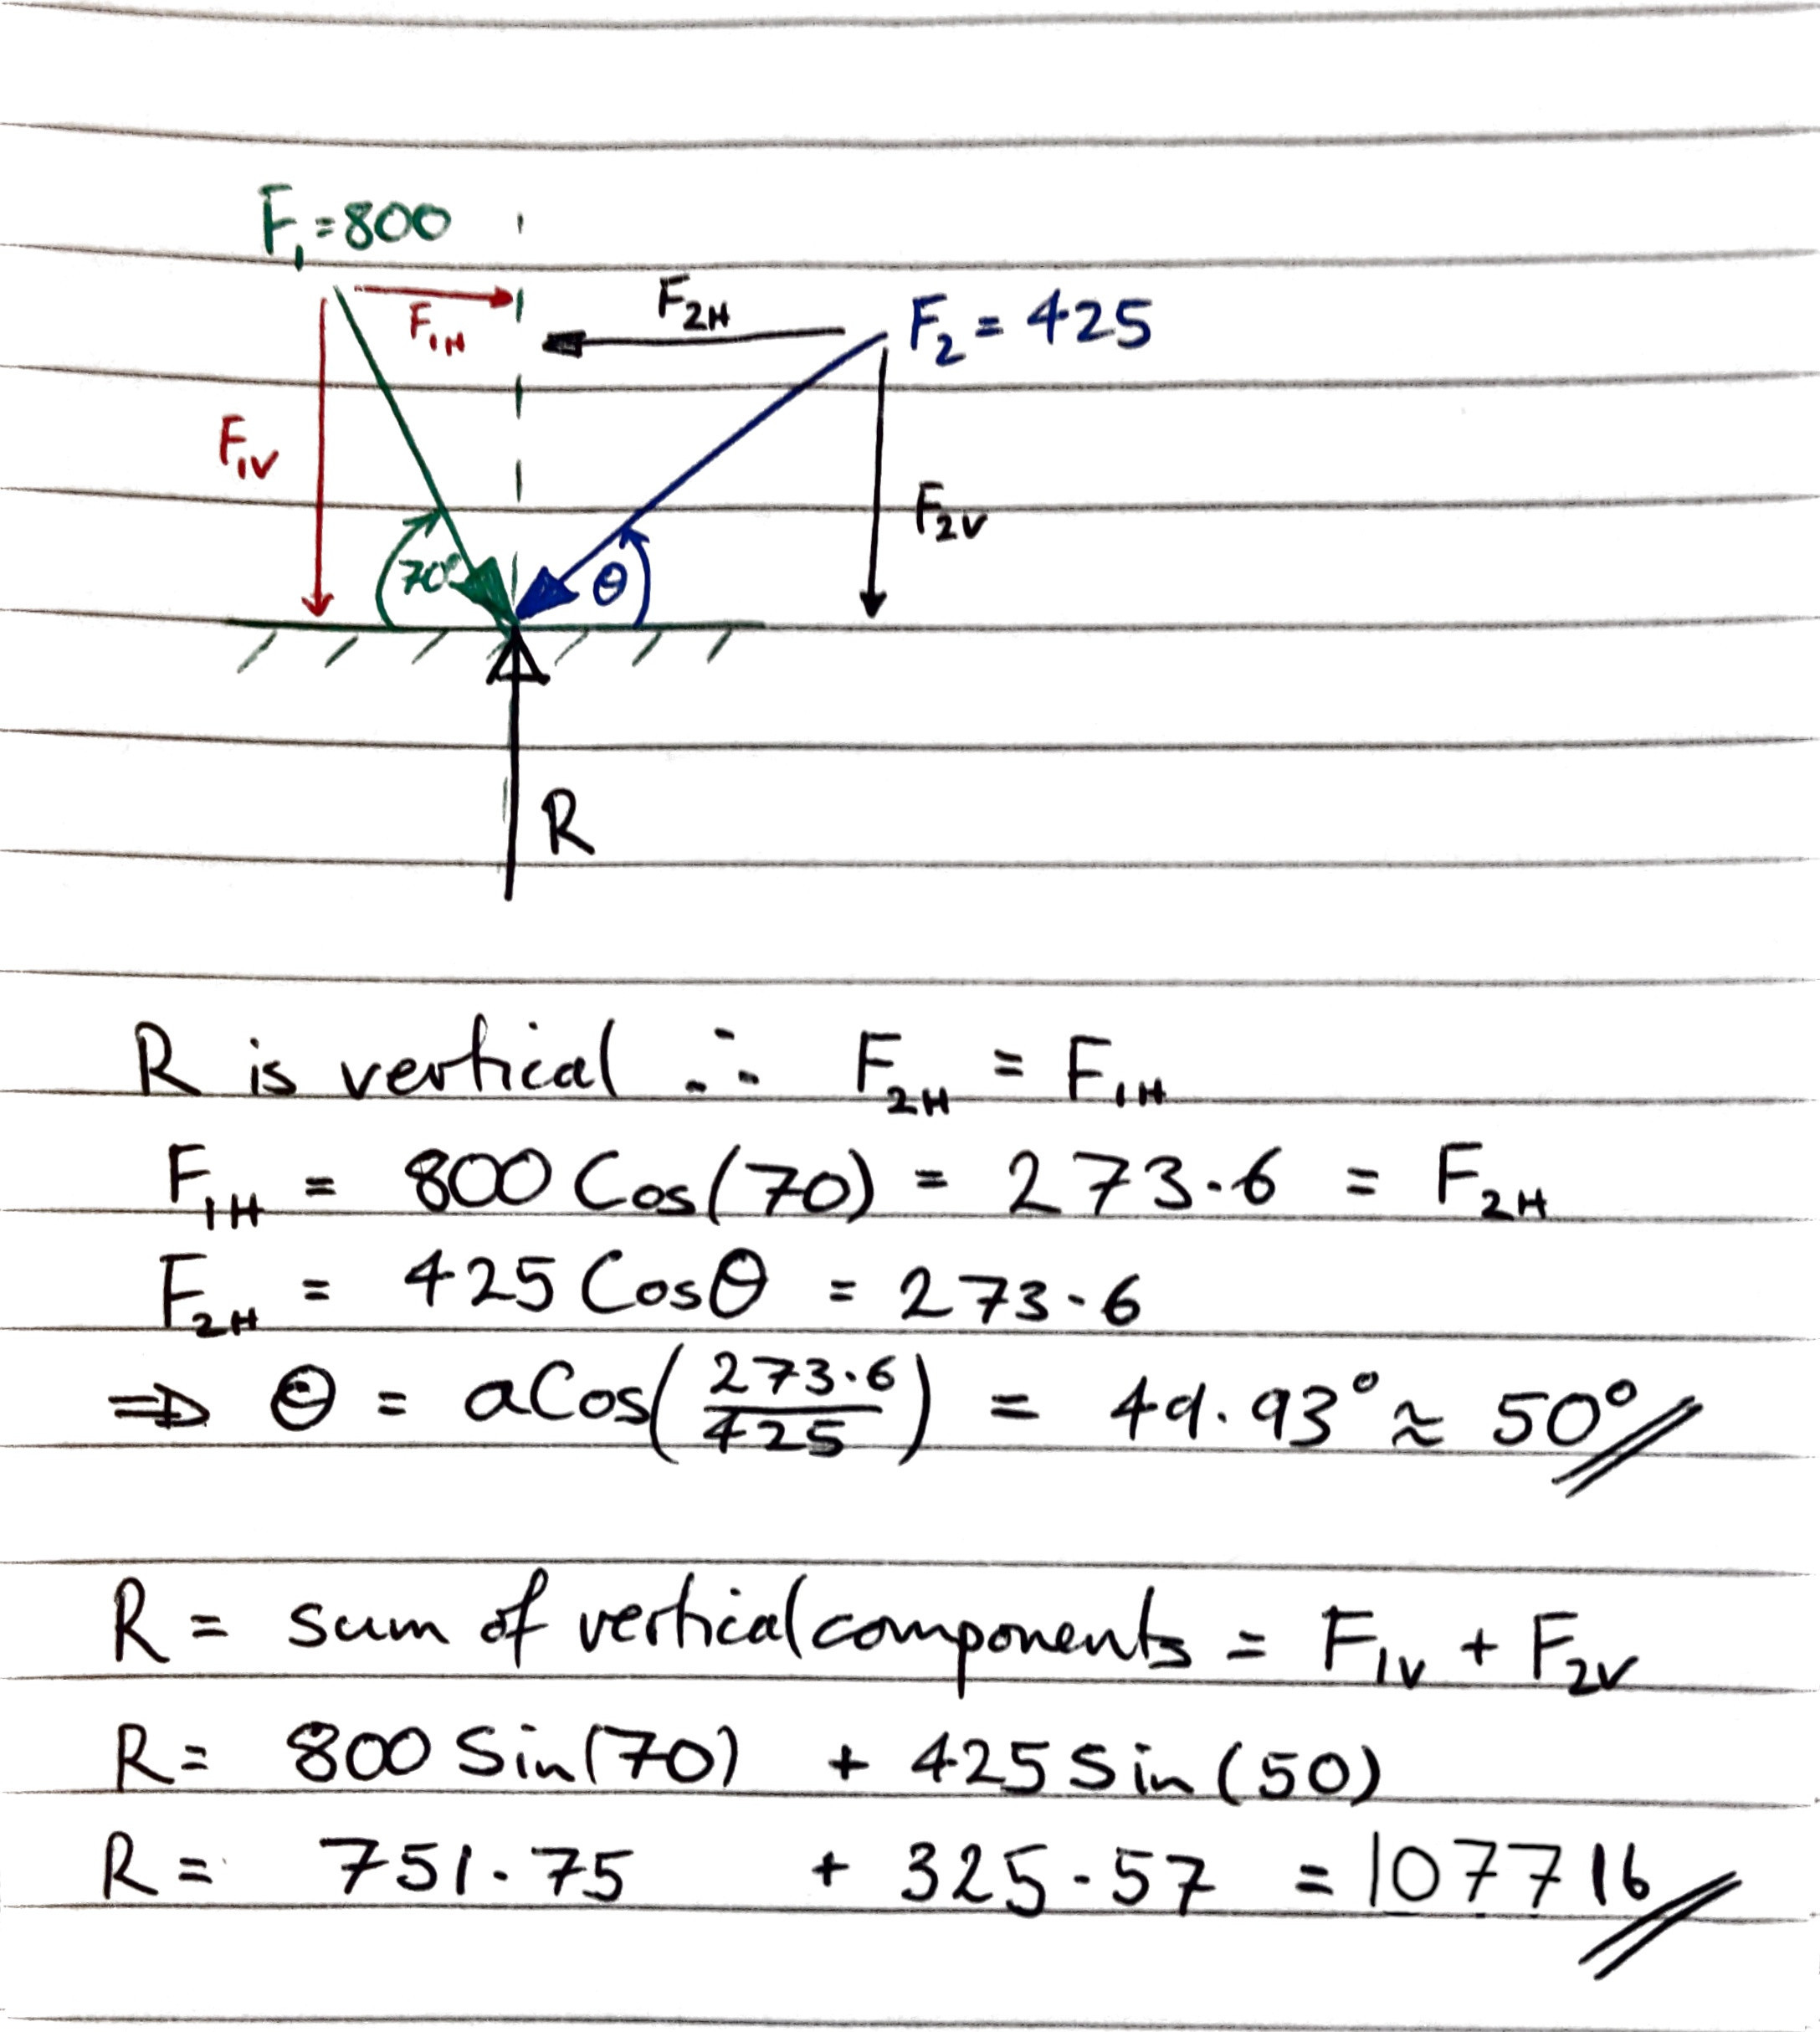 F₁=800
F₁H
F₂H
F₂ = 425
F₁V
F₂V
70°
θ
R
R is vertical ∴ F₂H = F₁H
F₁H = 800 Cos(70) = 273.6 = F₂H
F₂H = 425 Cosθ = 273.6
⇒ θ = aCos(273.6/425) = 49.93° ≈ 50°
R = sum of vertical components = F₁V + F₂V
R = 800 Sin(70) + 425 Sin(50)
R = 751.75 + 325.57 = 107716